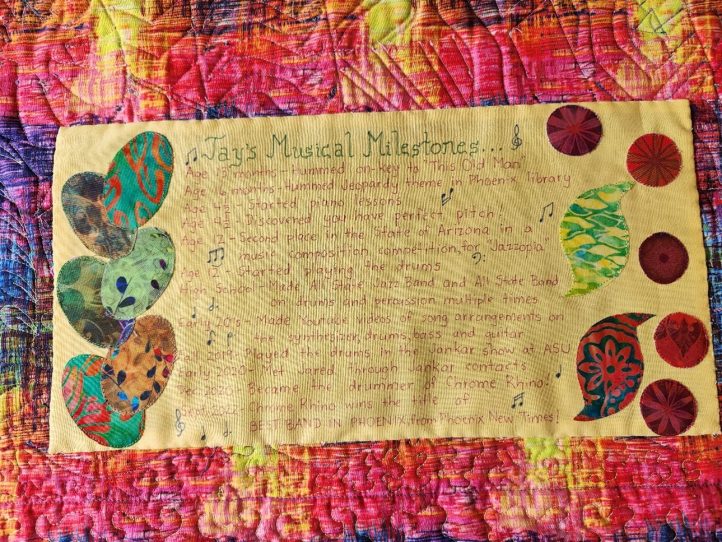 Jay's Musical Milestones...
Age 13 months - Hummed on-key to "This Old Man"
Age 16 months - Hummed Jeopardy theme in Phoenix library
Age 4½ - Started piano lessons
Age 4½ - Discovered you have perfect pitch!
Age 12 - Second place in the State of Arizona in a
music composition competition, for "Jazzopia"
Age 12 - Started playing the drums
High School - Made All State Jazz Band and All State Band
on drums and percussion multiple times
Early 20's - Made Youtube videos of song arrangements on
the synthsizer, drums, bass and guitar
2019 - Played the drums in the Jankar show at ASU
Early 2020 - Met Jared through Jankar contacts
Dec. 2020 - Became the drummer of Chrome Rhino!
Sept. 2022 - Chrome Rhino wins the title of
BEST BAND IN PHOENIX, from Phoenix New Times!